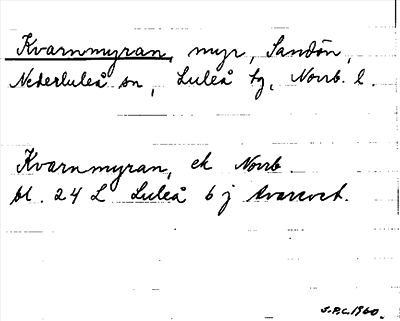 Kvarnmyran, myr, Sandön,
Nederluleå sn, Luleå tg, Norrb. l.
Kvarnmyran, ek Norrb
bl. 24 L Luleå 6 j
S.P.C. 1960.